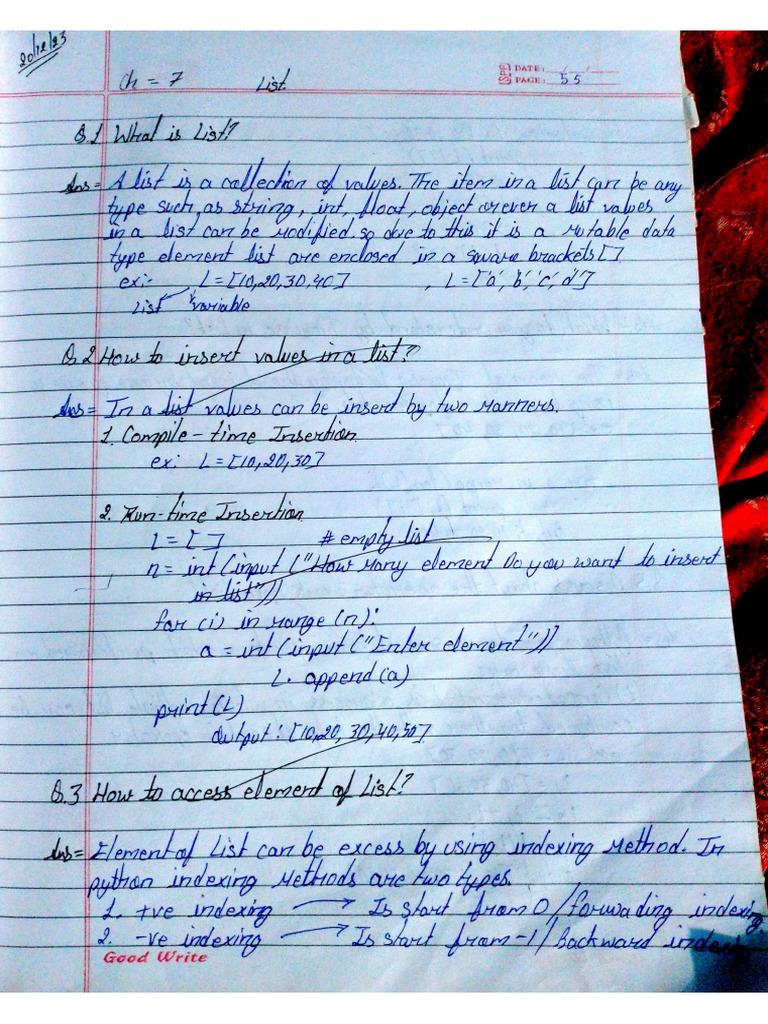 20/12/23
Ch = 7 List.
SPP DATE: / /
PAGE: 55
Q.1 What is List?
Ans = A list is a collection of values. The item in a list can be any
type such, as string, int, float, object or even a list values
in a list can be modified. so due to this it is a mutable data
type element list are enclosed in a square brackets []
ex:- L = [10,20,30,40] , L = ['a', 'b', 'c', 'd']
List variable
Q.2 How to insert values in a list?
Ans = In a list values can be insert by two manners.
1. Compile-time Insertion
ex: L = [10,20,30]
2. Run-time Insertion
L = [ ] # empty list
n = int (input ("How many element Do you want to insert
in list"))
for (i) in range (n):
a = int (input ("Enter element"))
L. append (a)
print (L)
Output : [10,20, 30,40,50]
Q.3 How to access element of List?
Ans = Element of List can be excess by using indexing method. In
python indexing methods are two types.
1. +ve indexing → Is start from 0 / forwading indexing.
2. -ve indexing → Is start from -1 / Backward
Good Write